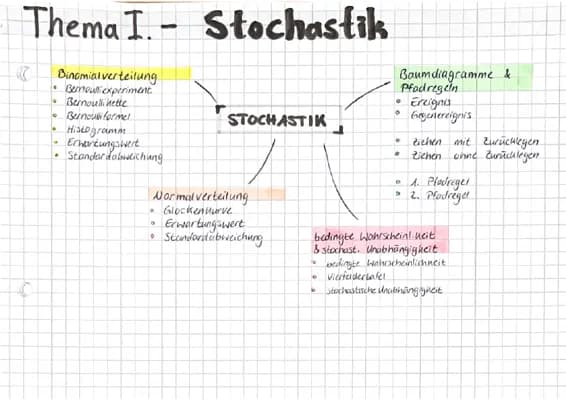 Thema I. - Stochastik
Binomialverteilung
• Bernoulliexperiment
• Bernoullikette
• Bernoulliformel
• Histogramm
• Erwartungswert
• Standardabweichung
STOCHASTIK
Baumdiagramme &
Pfadregeln
• Ereignis
• Gegenereignis
• ziehen mit Zurücklegen
• ziehen ohne Zurücklegen
• 1. Pfadregel
• 2. Pfadregel
Normalverteilung
• Glockenkurve
• Erwartungswert
• Standardabweichung
bedingte Wahrscheinlichkeit
& stochast. Unabhängigkeit
• bedingte Wahrscheinlichkeit
• Vierfeldertafel
• stochastische Unabhängigkeit